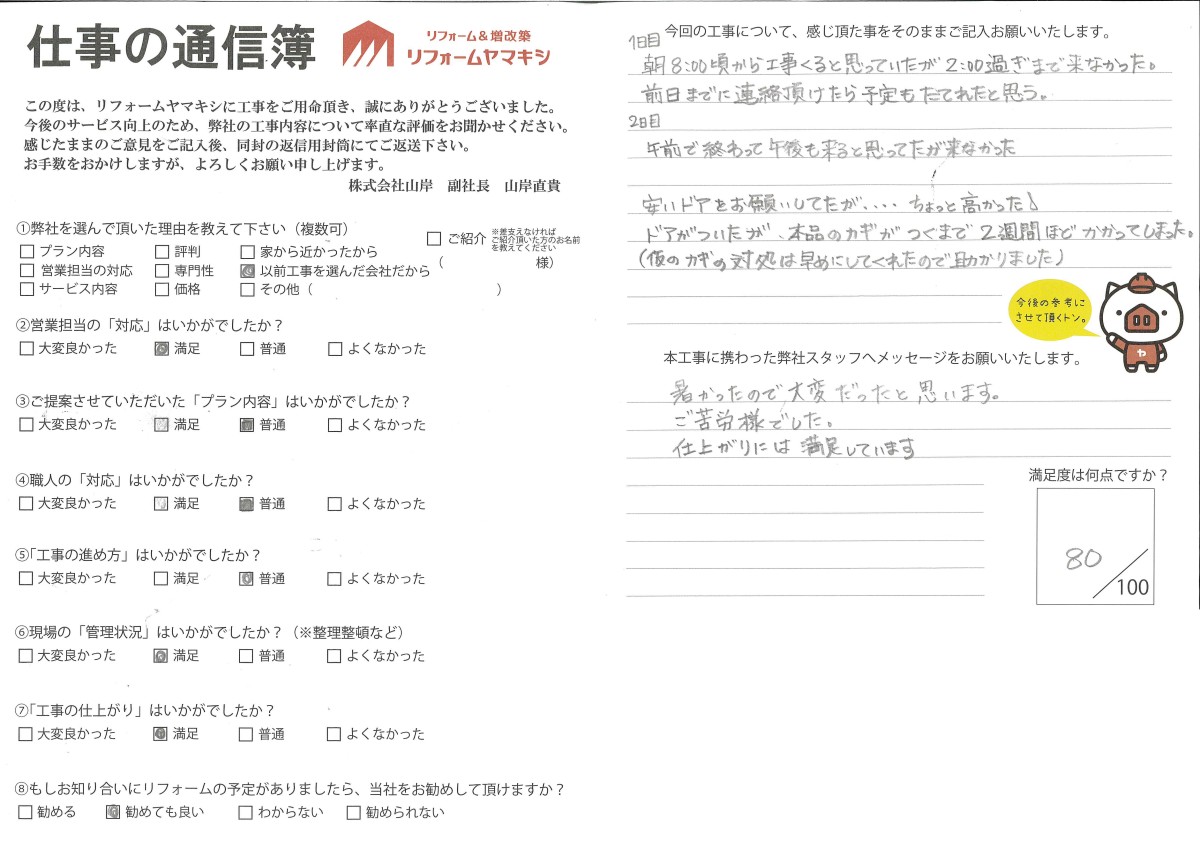 仕事の通信簿
リフォーム&増改築
リフォームヤマキシ
この度は、リフォームヤマキシに工事をご用命頂き、誠にありがとうございました。
今後のサービス向上のため、弊社の工事内容について率直な評価をお聞かせください。
感じたままのご意見をご記入後、同封の返信用封筒にてご返送下さい。
お手数をおかけしますが、よろしくお願い申し上げます。
株式会社山岸 副社長 山岸直貴
①弊社を選んで頂いた理由を教えて下さい(複数可)
プラン内容 評判 家から近かったから
営業担当の対応 専門性 以前工事を選んだ会社だから
サービス内容 価格 その他( )
ご紹介 ※差支えなければ
ご紹介頂いた方のお名前
を教えてください
( 様)
②営業担当の「対応」はいかがでしたか?
大変良かった 満足 普通 よくなかった
③ご提案させていただいた「プラン内容」はいかがでしたか?
大変良かった 満足 普通 よくなかった
④職人の「対応」はいかがでしたか?
大変良かった 満足 普通 よくなかった
⑤「工事の進め方」はいかがでしたか?
大変良かった 満足 普通 よくなかった
⑥現場の「管理状況」はいかがでしたか?(※整理整頓など)
大変良かった 満足 普通 よくなかった
⑦「工事の仕上がり」はいかがでしたか?
大変良かった 満足 普通 よくなかった
⑧もしお知り合いにリフォームの予定がありましたら、当社をお勧めして頂けますか?
勧める 勧めても良い わからない 勧められない
今回の工事について、感じ頂た事をそのままご記入お願いいたします。
1日目
朝8:00頃から工事くると思っていたが2:00過ぎまで来なかった。
前日までに連絡頂けたら予定もたてれたと思う。
2日目
午前で終わって午後も来ると思ってたが来なかった
安いドアをお願いしてたが、... ちょっと高かった♪
ドアがついたが、本品のカギがつくまで2週間ほどかかってしまった。
(仮のカギの対処は早めにしてくれたので助かりました)
今後の参考に
させて頂くトン。
ヤ
本工事に携わった弊社スタッフへメッセージをお願いいたします。
暑かったので大変だったと思います。
ご苦労様でした。
仕上がりには満足しています
満足度は何点ですか?
80/100